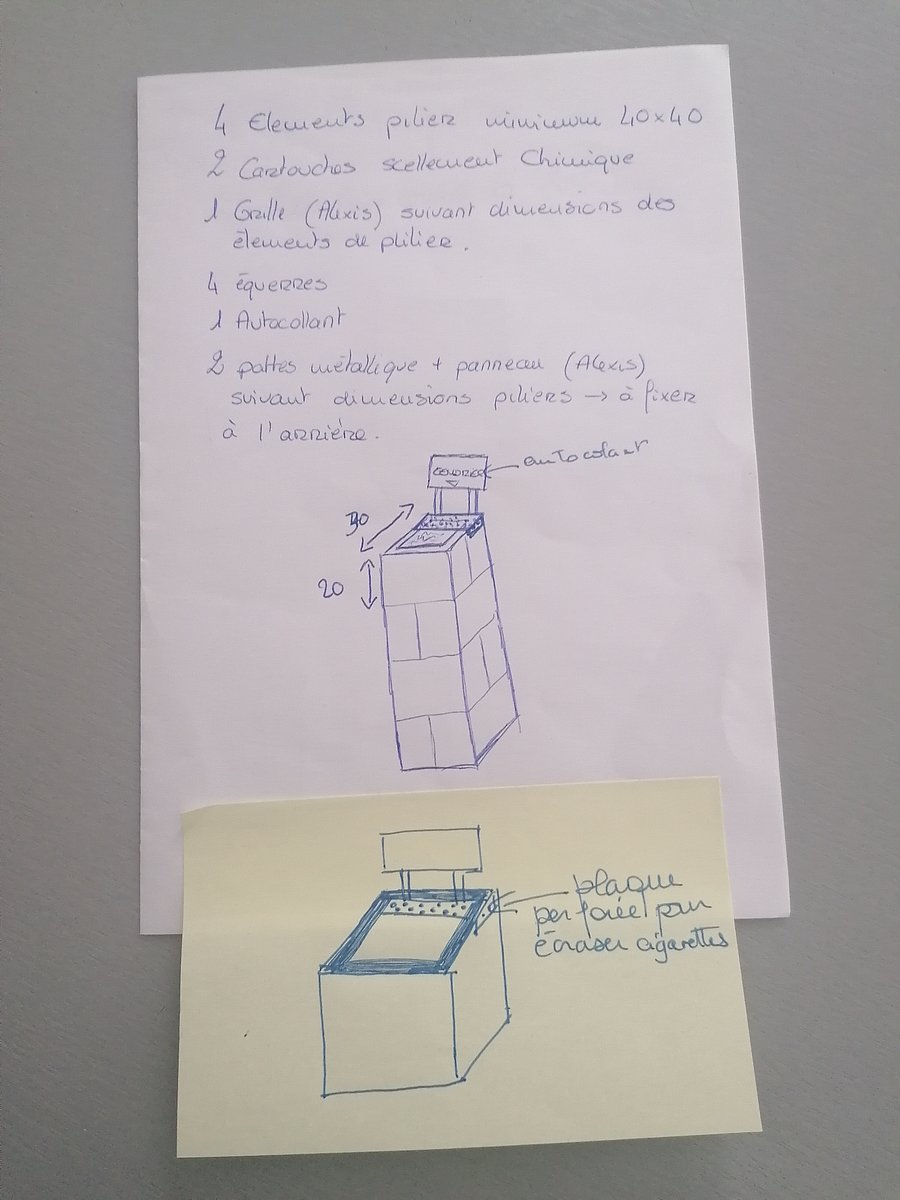 4 Elements pilier minimum 40x40
2 Cartouches scellement Chimique
1 Grille (Alexis) suivant dimensions des
élements de plilier.
4 équerres
1 Autocollant
2 pattes métallique + panneau (Alexis)
suivant dimensions piliers → à fixer
à l'arrière.
autocolant
CENDRIER
20
plaque
perforée pour
écraser cigarettes